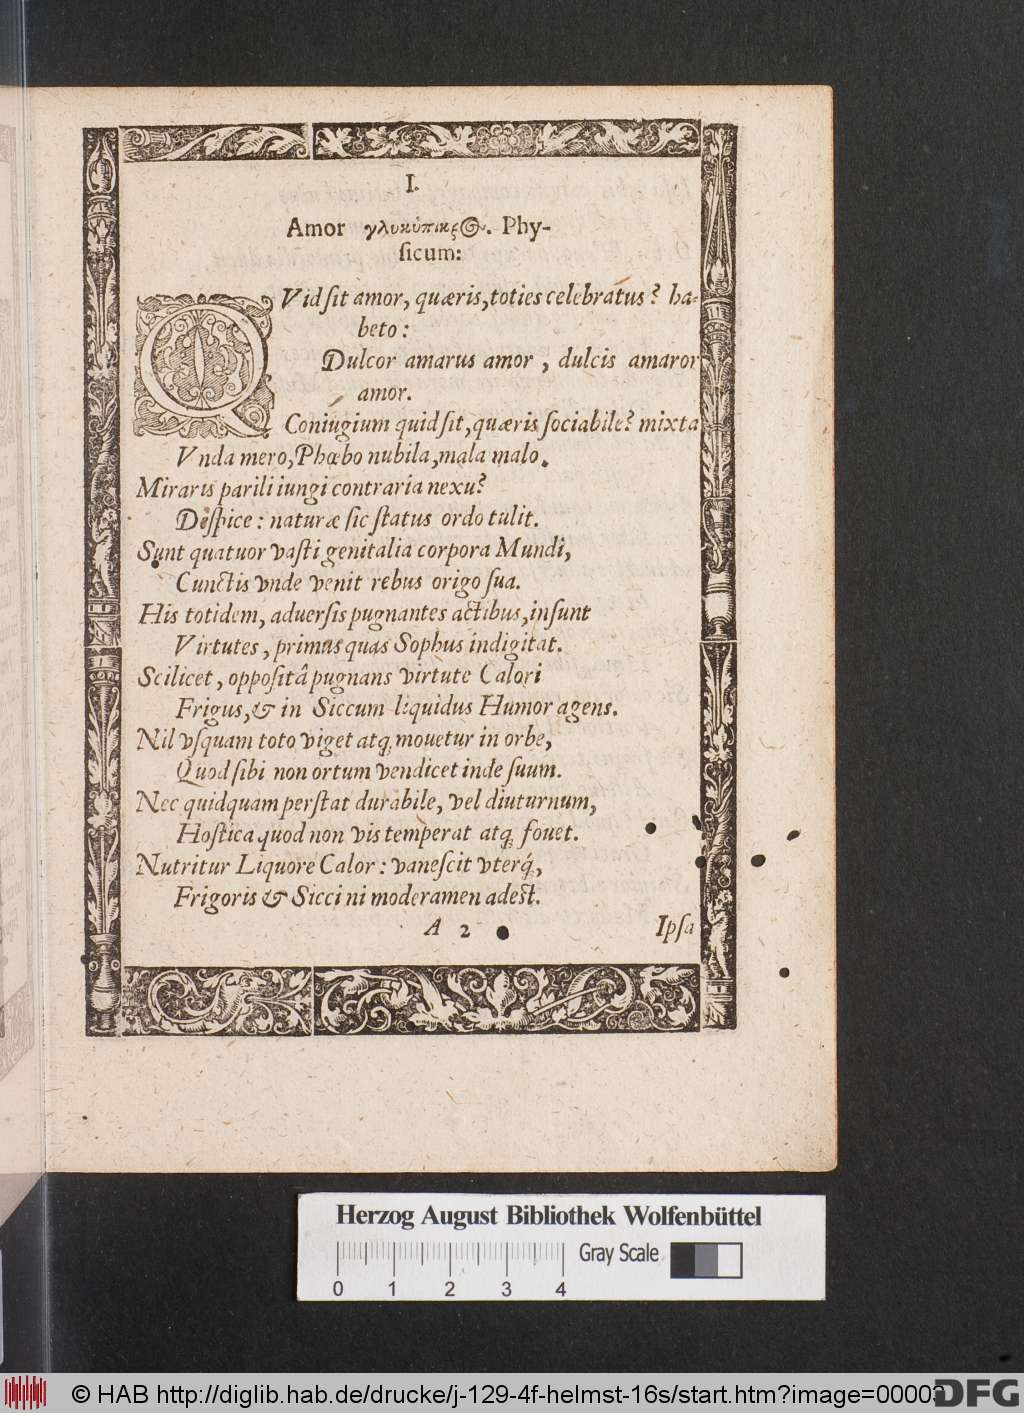 I.
Amor γλυκύπικρος. Phy-
sicum:
QVid sit amor, quæris, toties celebratus? ha-
beto:
Dulcor amarus amor, dulcis amaror
amor.
Coniugium quid sit, quæris sociabile? mixta
Vnda mero, Phœbo nubila, mala malo.
Miraris parili iungi contraria nexu?
Despice: naturæ sic status ordo tulit.
Sunt quatuor vasti genitalia corpora Mundi,
Cunctis vnde venit rebus origo sua.
His totidem, aduersis pugnantes actibus, insunt
Virtutes, primus quas Sophus indigitat.
Scilicet, oppositâ pugnans virtute Calori
Frigus, & in Siccum liquidus Humor agens.
Nil vsquam toto viget atq; mouetur in orbe,
Quod sibi non ortum vendicet inde suum.
Nec quidquam perstat durabile, vel diuturnum,
Hostica quod non vis temperat atq; fouet.
Nutritur Liquore Calor: vanescit vterq́;,
Frigoris & Sicci ni moderamen adest.
A 2
Ipsa
Herzog August Bibliothek Wolfenbüttel
Gray Scale
0 1 2 3 4
© HAB http://diglib.hab.de/drucke/j-129-4f-helmst-16s/start.htm?image=00003
DFG